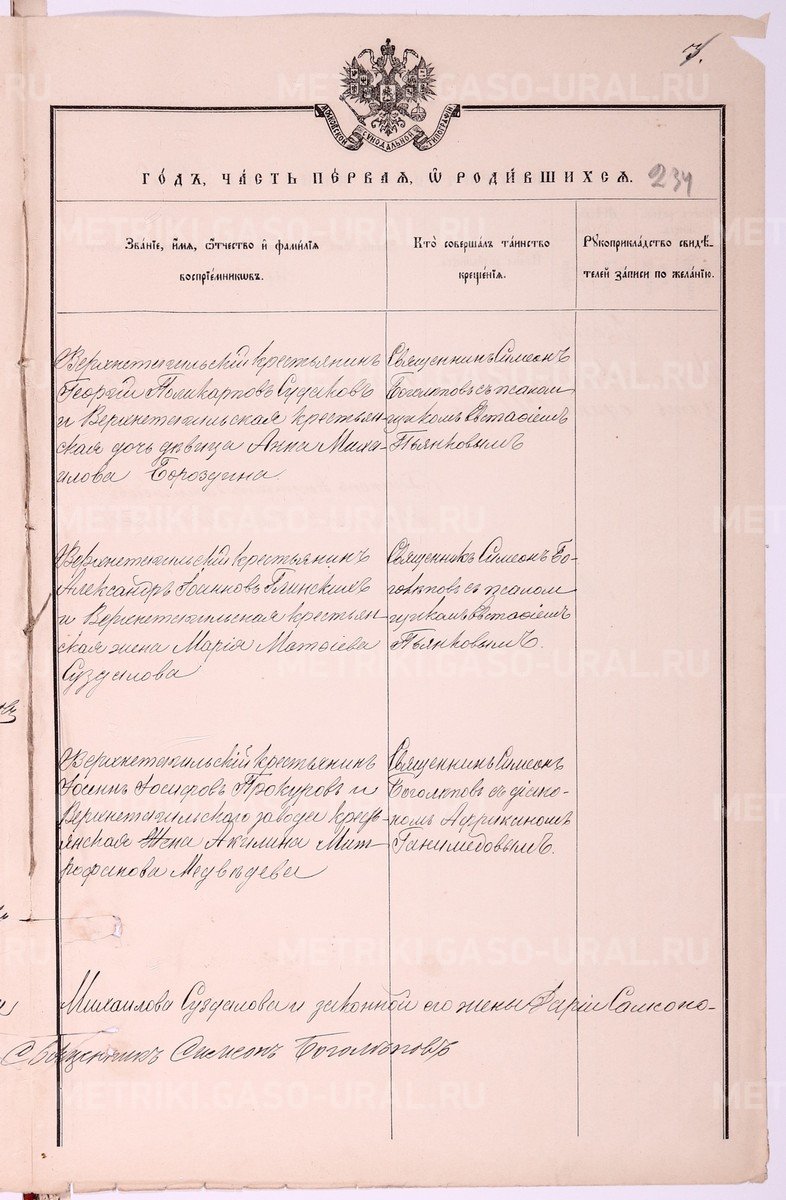 З.
МОСКОВСКОЙ СѴНОДАЛЬНОЙ ТИПОГРАФІИ
ГОДЪ, ЧАСТЬ ПЕРВАЯ, Ѡ РОДИВШИХСЯ. 234
Званіе, имя, ѻтчество и фамилія
воспріемникѡвъ.
Кто совершалъ таинство
крещенія.
Рукоприкладство свидѣ-
телей записи по желанію.
Верхнетагильскій крестьянинъ
Георгій Поликарповъ Судаковъ
и Верхнетагильская крестьян-
ская дочь дѣвица Анна Миха-
илова Бороздина
Священникъ Симеонъ
Боголѣповъ съ псалом
щикомъ Евстафіемъ
Пьянковымъ
Верхнетагильскій крестьянинъ
Александръ Іоанновъ Глинскихъ
и Верхнетагильская крестьян-
ская жена Марія Матѳіева
Суздалова
Священникъ Симеонъ Бо-
голѣповъ съ псалом
щикомъ Евстафіемъ
Пьянковымъ.
Верхнетагильскій крестьянинъ
Іоаннъ Іосифовъ Прокуровъ и
Верхнетагильскаго завода крест
янская жена Акилина Мит
рофанова Медвѣдева
Священникъ Симеонъ
Боголѣповъ съ діако-
номъ Африканомъ
Ганимедовымъ.
Михаилова Суздалова и законной его жены Даріи Самсоно-
Священникъ Симеонъ Боголѣповъ
METRIKI.GASO-URAL.RU